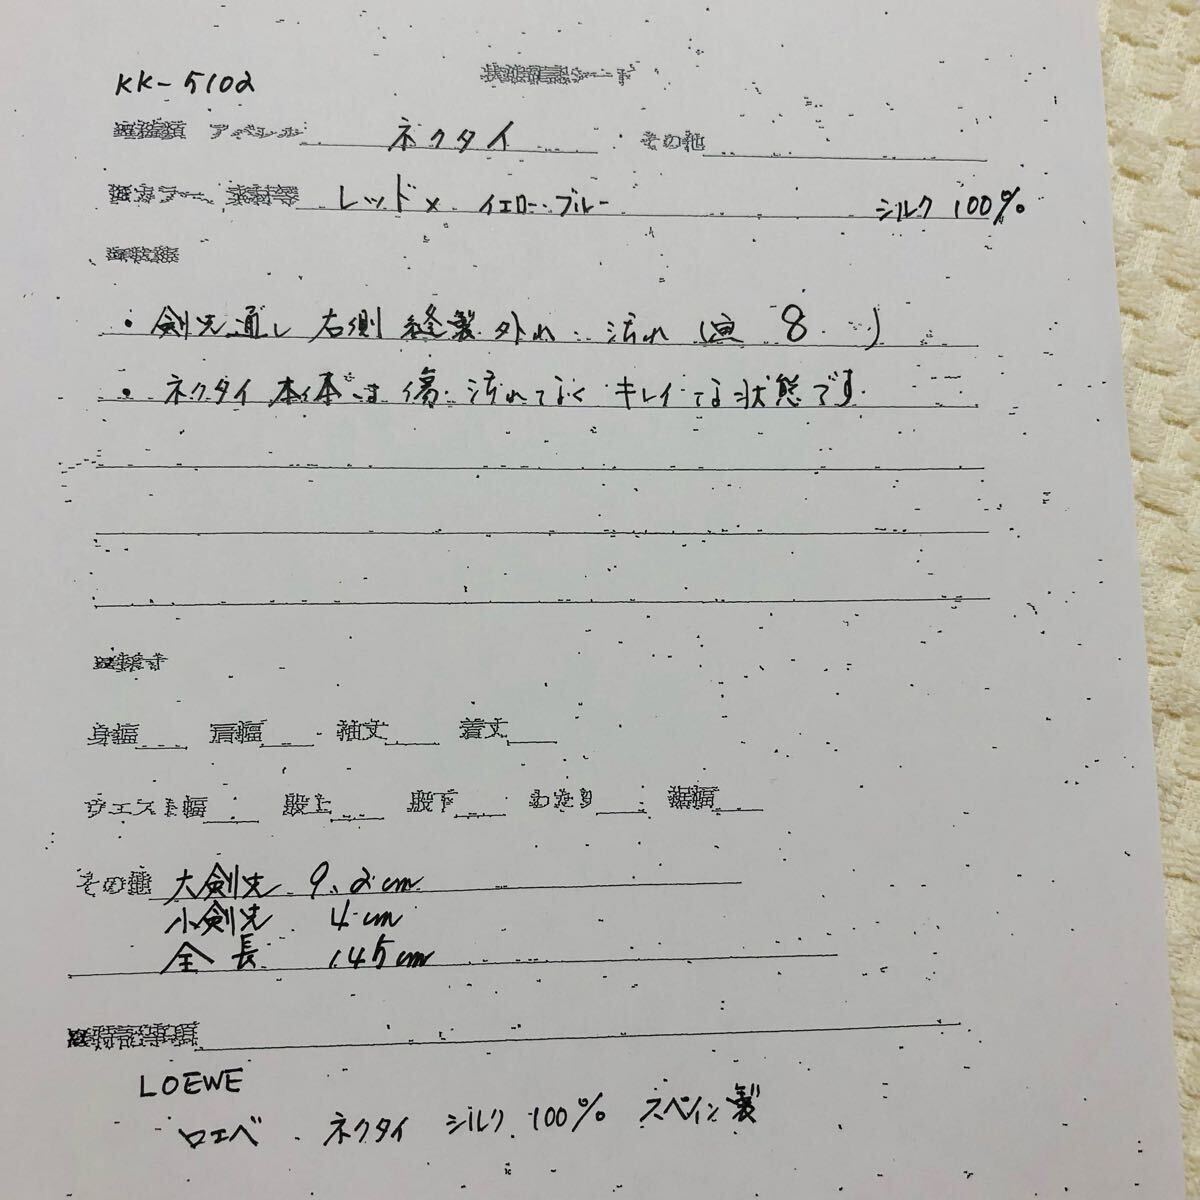 KK-5102
状態確認シート
アパレル ネクタイ その他
カラー、素材等 レッド× イエロー・ブルー シルク 100%
・剣先通し 右側 縫製 外れ・汚れ (画 8 )
・ネクタイ 本体は 傷・汚れてなく キレイな状態です
身幅 肩幅 袖丈 着丈
ウエスト幅 股上 股下 わたり 裾幅
その他 大剣先 9.2cm
小剣先 4cm
全長 145cm
特記事項
LOEWE
ロエベ ネクタイ シルク 100% スペイン製